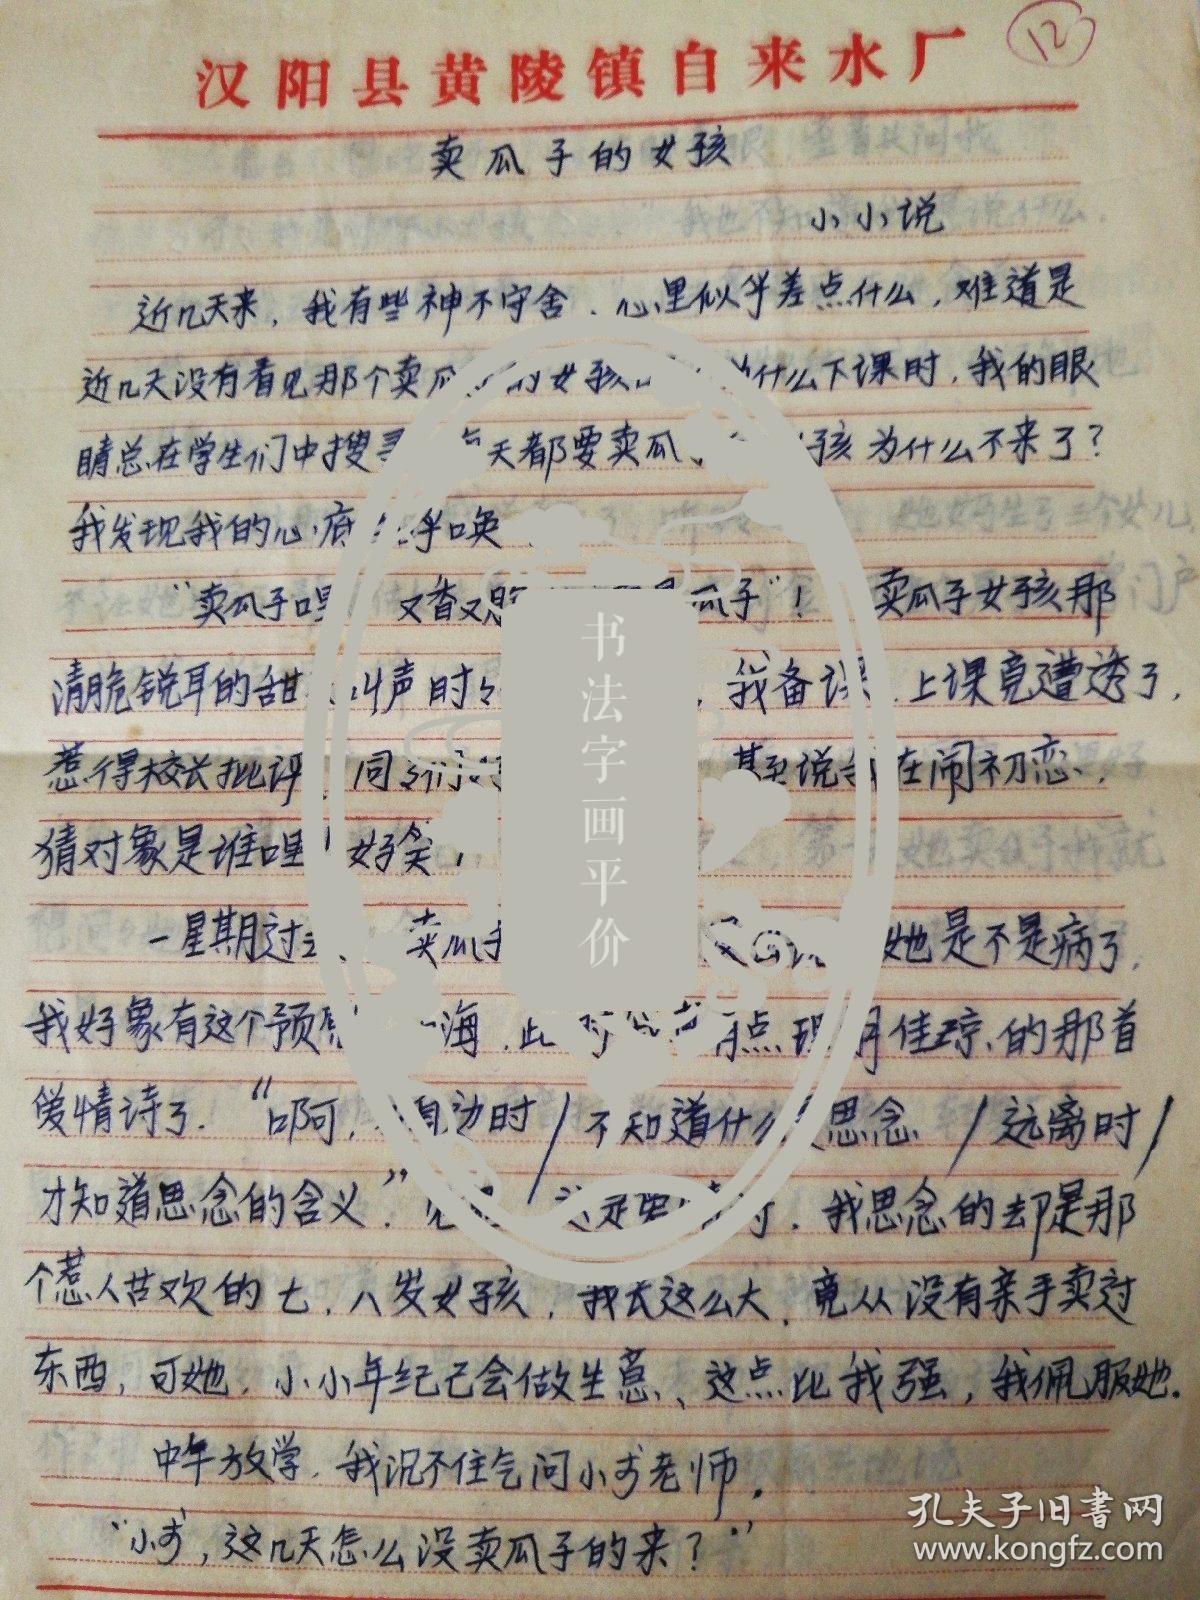 12
汉阳县黄陵镇自来水厂
卖瓜子的女孩
小小说
近几天来，我有些神不守舍．心里似乎差点什么，难道是
近几天没有看见那个卖瓜 的女孩 为什么下课时，我的眼
睛总在学生们中搜寻 天都要卖瓜 孩为什么不来了？
我发现我的心底 呼唤
“卖瓜子哩 又香又 瓜子”！ 卖瓜子女孩那
清脆锐耳的甜 叫声时 我备课、上课竟遭透了，
惹得校长批评 同 们 甚至说我在闹初恋，
猜对象是谁哩 好笑
一星期过去 卖瓜子 她是不是病了，
我好象有这个预感 海．此 点 月佳琼的那首
爱情诗了．“啊， 身边时／不知道什么 思念／远离时／
才知道思念的含义”． 这是爱情诗，我思念的却是那
个惹人苦欢的七．八岁女孩，我长这么大，竟从没有亲手卖过
东西，可她，小小年纪已会做生意、这点比我强，我佩服她．
中午放学，我沉不住气问小 老师．
“小 ，这几天怎么没卖瓜子的来？”
书法字画平价
孔夫子旧书网
www.kongfz.com